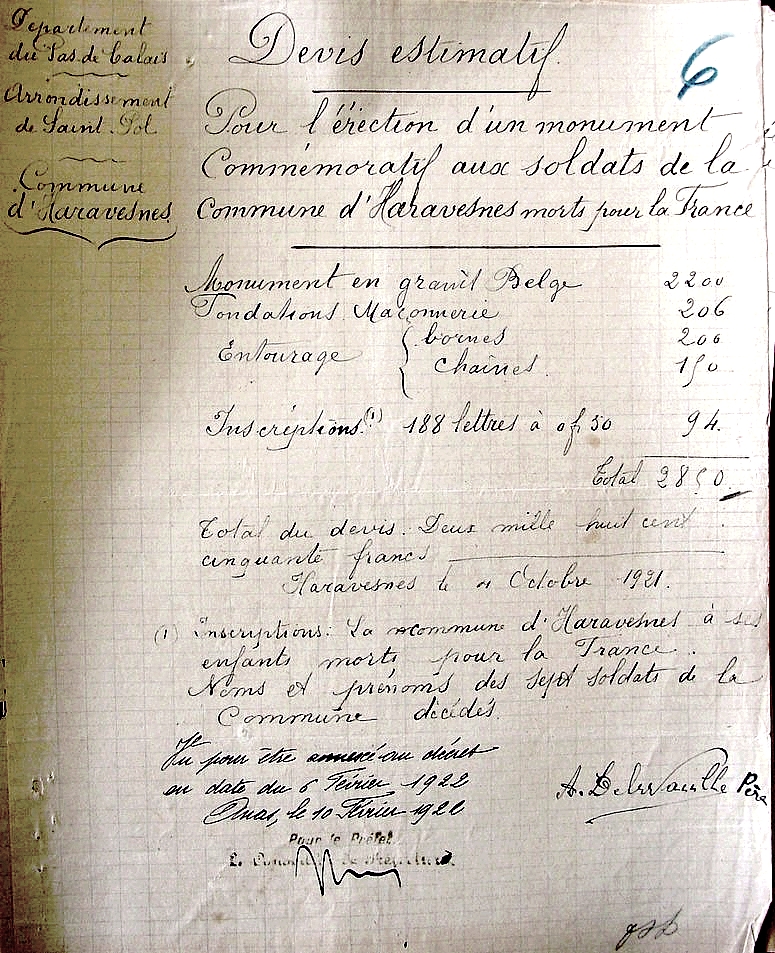 Département
du Pas de Calais
Arrondissement
de Saint-Pol
Commune
d'Haravesnes
6
Devis estimatif
Pour l'éréction d'un monument
Commémoratif aux soldats de la
Commune d'Haravesnes morts pour la France
Monument en granit Belge 2200
Fondations Maçonnerie 206
Entourage { bornes 200
chaînes 150
Inscréptions (1) 188 lettres à 0f50 94.
Total 2850.
Total du devis. Deux mille huit cent
cinquante francs
Haravesnes le 4 Octobre 1921.
(1) Inscriptions: La commune d'Haravesnes à ses
enfants morts pour la France.
Noms et prénoms des sept soldats de la
Commune décédés.
Vu pour être annexé au décret
en date du 6 Février 1922
Arras, le 10 Février 1922
A. Père
Pour le Préfet